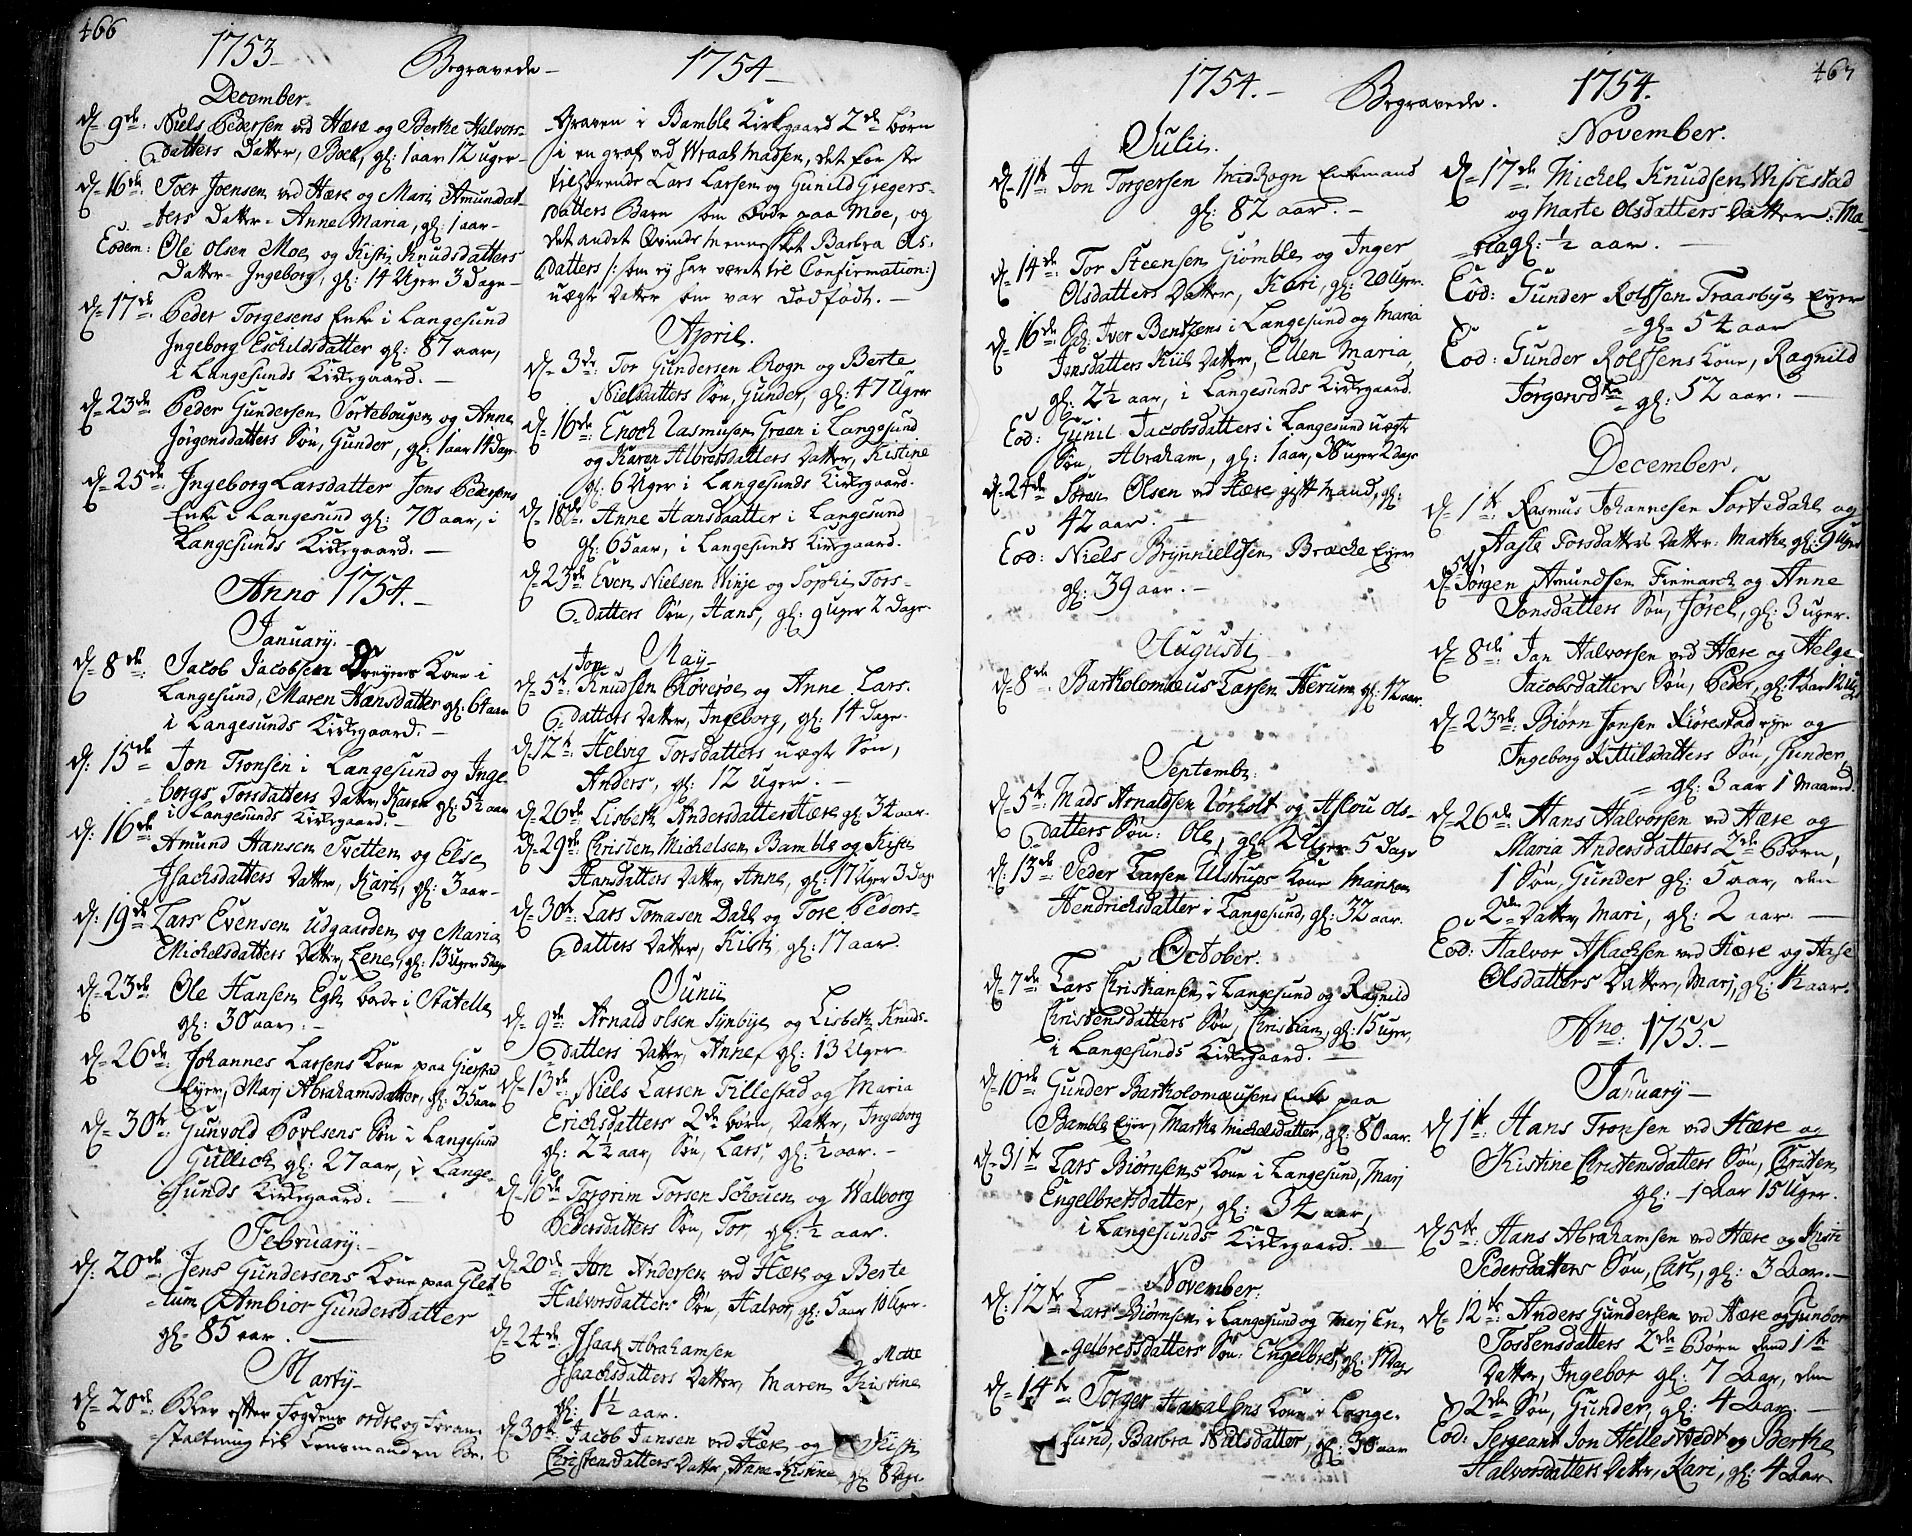 466
1753
Begravede
1754
December
d= 9de: Niels Pedersen ved Hære og Berthe Halvors-
datters Datter, Boel, gl: 1 aar 12 uger
d= 16de: Toer Joensen ved Hære og Mari Amundsdat-
ters Datter Anne Maria, gl: 1 aar
Eodem: Ole Olsen Moe og Kisti Knudsdatters
Datter Ingeborg, gl: 14 Uger 3 Dage
d= 17de Peder Torgesens Enke i Langesund
Ingeborg Eschildsdatter gl: 87 aar,
i Langesunds Kirkegaard.
d= 23de Peder Gundersen Sortebougen og Anne
Jörgensdatters Søn, Gunder, gl: 1 aar 14 Dage
d= 25de: Ingeborg Larsdatter Jens Pedersens
Enke i Langesund gl: 70 aar, i
Langesunds Kirkegaard.
Anno 1754.
January.
d= 8de: Jacob Jacobsen Dreyers Kone i
Langesund, Maren Hansdatter gl: 64 aar
i Langesunds Kirkegaard.
d: 15de Jon Tronsen i Langesund og Inge-
borgs Torsdatters Datter, Karen gl: 5½ aar
i Langesunds Kirkegaard.
d: 16de Amund Hansen Tvetten og Else
Isachsdatters Datter, Kari, gl: 3 aar
d: 19de Lars Evensen Udgaarden og Maria
Michelsdatters Datter, Lene, gl: 13 Uger 5 Dage
d= 23de Ole Hansen Egh boede i Statelle
gl: 30 aar.
d= 26de: Johannes Larsens Kone paa Gierstad
Eyer, Marj Abrahamsdatter, gl: 35 aar
d= 30te: Gunvold Povlsens Søn i Langesund
Gullich gl: 27 aar, i Lange-
sunds Kirkegaard.
February.
d: 20de: Jens Gundersens Kone paa
Ambior Gundersdatter
gl= 85 aar.
Marty
d= 20de: Blev efter Fogdens ordre og Foran-
staltning til Lensmanden
Graven i Bamble Kirkgaard 2de børn
i en graf ved Wraal Madsen, det første
tilhørende Lars Larsen og Gunild Gregers-
datters Barn som boede paa Moe, og
det andet Qvindemennesket Barbra Ols-
datters /: som ey har været til Confirmation:/
uægte Datter som var Dødfødt.
April.
d= 3de: Tor Gundersen Rogn og Berte
Nielsdatters Søn, Gunder, gl: 47 Uger
d= 16de: Enoch Rasmusen Green i Langesund
og Karen Albretsdatters Datter, Kistine
gl: 6 Uger i Langesunds Kirkegaard.
d= 18de: Anne Hansdaatter i Langesund
gl: 65 aar, i Langesunds Kirkegaard.
d= 23de Even Nielsen Vinje og Sophi Tors-
datters Søn, Hans, gl: 9 uger 2 Dage
May
d= 5te: Jon Knudsen Røverøe og Anne Lars-
datters Datter, Ingeborg, gl: 14 Dage
d: 12te: Helvig Torsdatters uægte Søn,
Anders, gl: 12 Uger.
d= 26de: Lisbeth Andersdatter Hære gl: 34 aar.
d= 29de: Christen Michelsen Bamble og Kisti
Hansdatters Datter, Anne, gl: 17 Uger 3 Dage
d= 30te: Lars Tomasen Dahl og Tore Peders-
datters Datter, Kisti gl: 17 aar.
Junii
d= 9de: Arnald Olsen Synbye og Lisbeth Knuds-
datters Datter, Anne, gl: 13 Uger
d= 13de Niels Larsen Tillestad og Maria
Erichsdatters 2de børn, Datter, Ingeborg
gl: 2½ aar, Søn, Lars, gl: ½ aar.
d= 16de Torgrim Torsen Schouen og Walborg
Pedersdatters Søn, Tor, gl: ½ aar.
d: 20de: Jon Andersen ved Hære og Berte
Halvorsdatters Søn, Halvor, gl: 5 aar 16 Uger.
d= 24de: Isaak Abrahamsen og Mette
Isaachsdatters Datter, Maren Kistine
gl: 1½ aar.
d: 30te: Jacob Jansen ved Hære og Kisti
Christensdatters Datter, Anne Kistine, gl: 8 Dage
467
1754.
Begravede.
1754.
Julii.
d= 11te Jon Torgersen Rogn Enkemand
gl: 82 aar.
d= 14de: Tor Steensen Giömble og Inger
Olsdatters Datter, Kari, gl: 20 Uger.
d= 16de Iver Bentsens i Langesund og Maria
Jensdatters Datter, Ellen Maria,
gl: 2½ aar, i Langesunds Kirkegaard.
Eod: Gunil Jacobsdatters i Langesund uægte
Søn, Abraham, gl: 1 aar, 38 uger 2 dage
d= 24de Søren Olsen ved Hære gift Mand, gl:
42 aar.
Eod: Niels Brynnieldsen Bracke Eyer
gl: 39 aar.
Augusti
d= 8de: Bartholomæus Larsen Herum gl: 12 aar.
Septembr:
d= 5te: Mads Arnaldsen Rörholt og Aslou Ols-
datters Søn: Ole, gl: 2 Uger 5 Dage
d: 13de: Peder Larsen Ulstrups Kone Maricken
Hendrichsdatter i Langesund, gl: 32 aar.
October:
d= 7de: Lars Christiansen i Langesund og Ragnild
Christensdatters Søn, Christian, gl: 15 uger,
i Langesunds Kirkegaard.
d= 10de Gunder Bartholomæusens Enke paa
Bamble Eyer, Marthe Michelsdatter, gl: 80 aar.
d= 31te Lars Biörnsens Kone i Langesund, Marj
Engelbretsdatter, gl: 34 aar,
i Langesunds Kirkegaard.
November:
d: 12te Lars Biörnsen i Langesund og Marj En-
gelbretsdatters Søn: Engelbret, gl: 17 Dage
d= 14te Torger Haralsens Kone i Lange-
sund, Barbra Nielsdatter, gl: 50 aar
November.
d= 17de: Michel Knudsen Wissestad
og Marte Olsdatters Datter: Ma-
ria gl: ½ aar.
Eod: Gunder Rolfsen Traasbye Eyer
gl= 54 aar
Eod: Gunder Rolfsens Kone, Ragnild
Torgersdtr gl: 52 aar.
December.
d= 1te: Rasmus Johannesen Sortedahl og
Aaste Torsdatters Datter: Marthe gl: 9 Uger
d= 5te Jörgen Amundsen Finmarck og Anne
Jonsdatters Søn, Jörel, gl: 3 uger.
d= 8de: Jan Halvorsen ved Hære og Helge
Jacobsdatters Søn, Peder, gl: 1 aar 12 Uger
d= 23de: Biørn Jonsen Kiörestad eye og
Ingeborg Kittilsdatters Søn, Gunder,
gl: 3 aar 1 Maaned.
d= 26de: Hans Halvorsen ved Hære og
Maria Andersdatters 2de Børn,
1 Søn, Gunder gl: 5 aar, den
2de Datter, Mari, gl: 2 aar.
Eod: Halvor Aslachsen ved Hære og Aase
Olsdatters Datter, Marj, gl: ½ aar.
Ano: 1755.
January
d: 1te: Hans Tronsen ved Hære og
Kistine Christensdatters Søn, Christen
gl: 1 Aar 15 Uger.
d: 5te: Hans Abrahamsen ved Hære og Kisti
Pedersdatters Søn, Carl, gl: 3 Aar.
d= 12te: Anders Gundersen ved Hære og Gunbor
Tostensdatters 2de Børn den 1ste
Datter, Ingebor gl: 7 Aar, den
2den Søn, Gunder, gl: 4 Aar.
Eod: Sergeant Jon Hellestvedt og Berthe
Halvorsdatters Datter, Kari, gl: 4 Aar